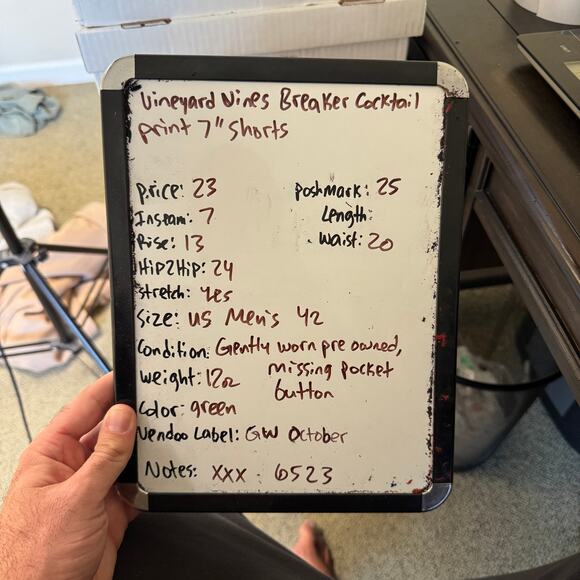 Vineyard Vines Breaker Cocktail
print 7" shorts
price: 23 poshmark: 25
Inseam: 7 Length:
Rise: 13 Waist: 20
Hip2Hip: 24
stretch: yes
Size: US Men's 42
Condition: Gently worn pre owned,
weight: 12oz missing pocket
button
Color: green
Vendoo Label: GW October
Notes: XXX 6523